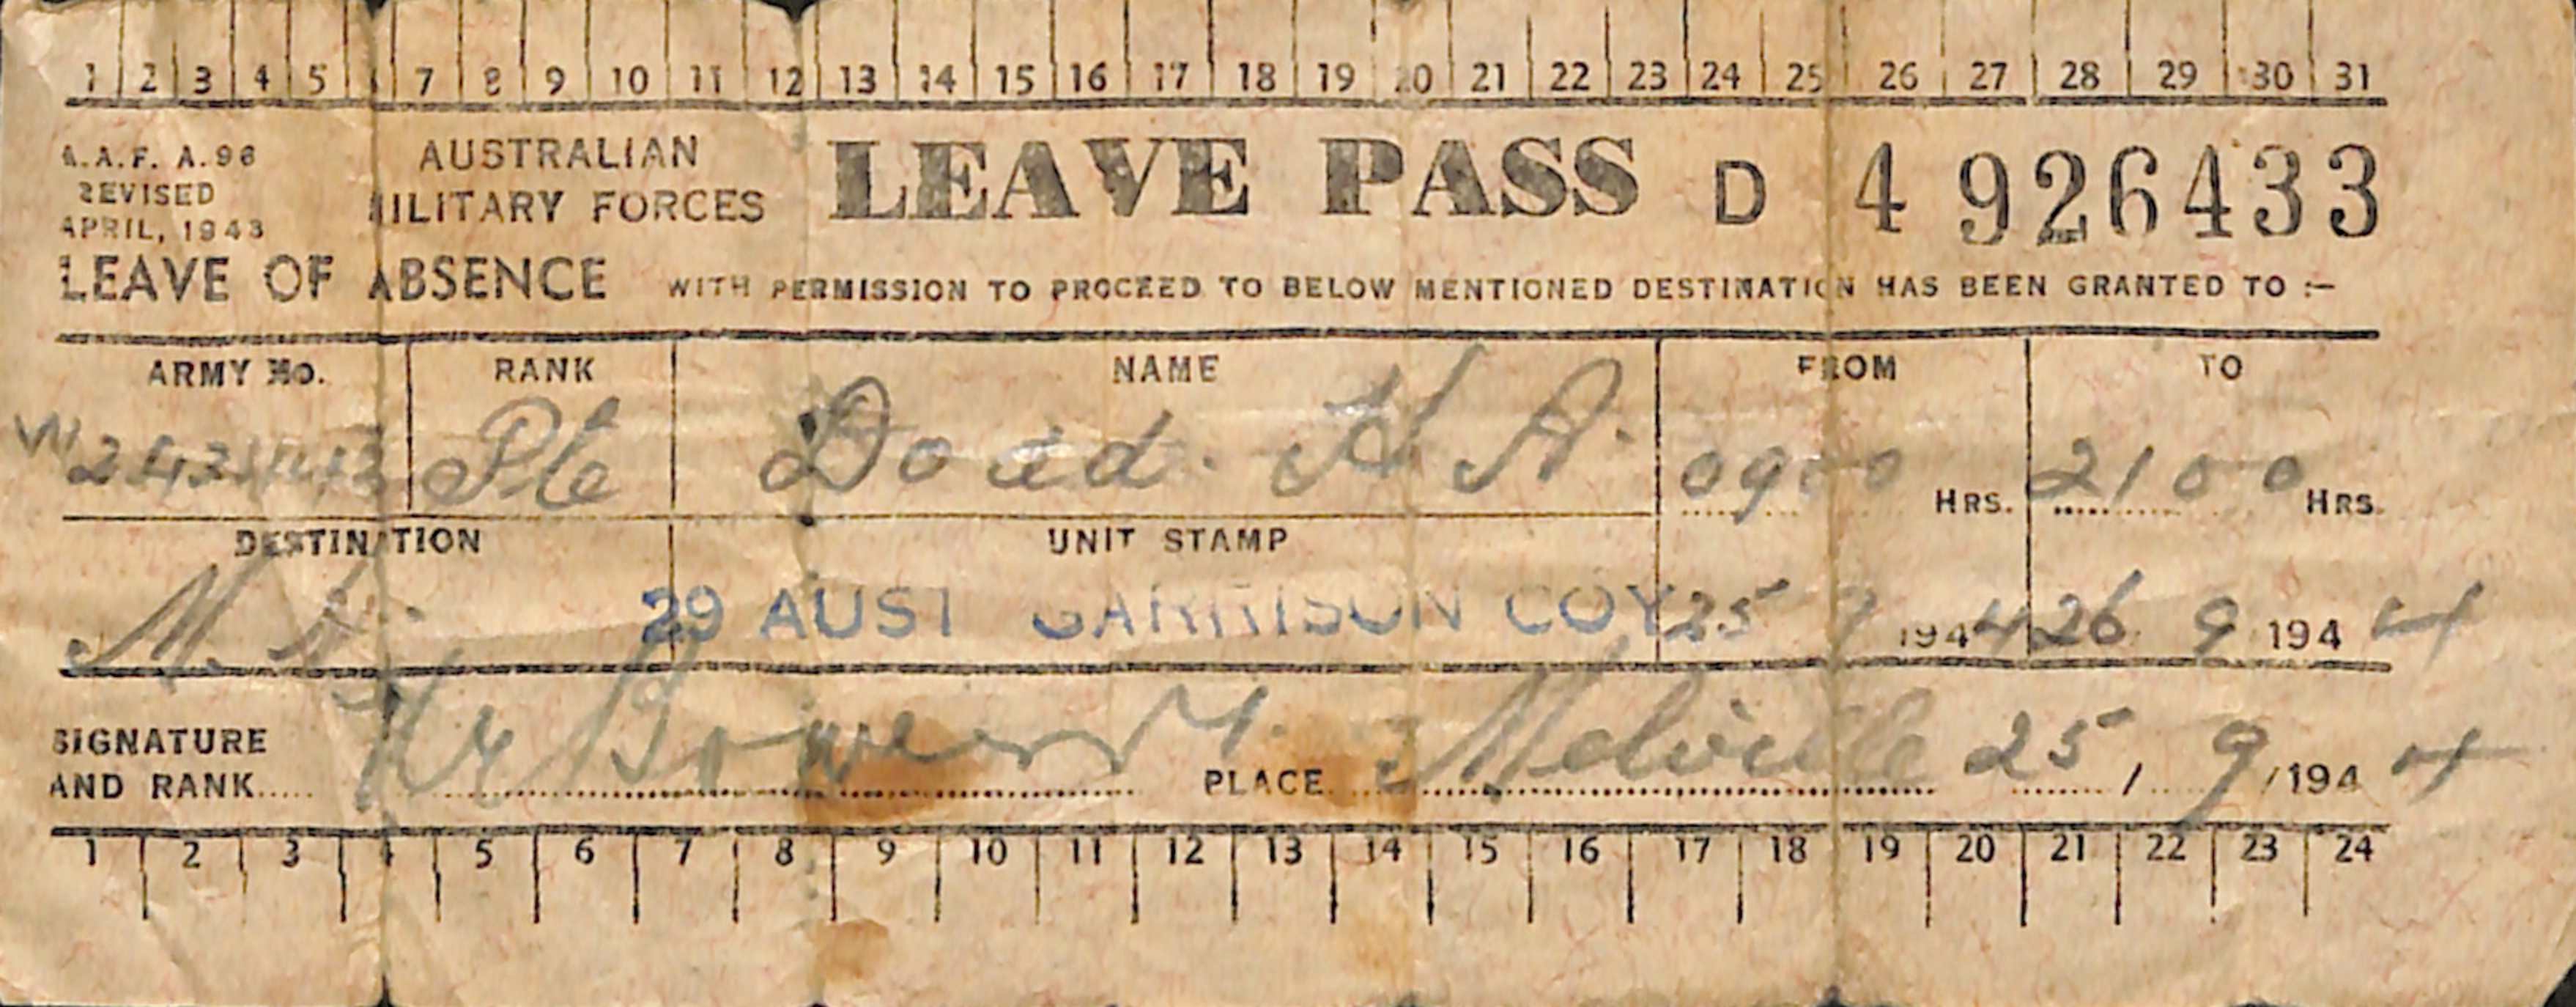 1 2 3 4 5 7 8 9 10 11 12 13 14 15 16 17 18 19 20 21 22 23 24 25 26 27 28 29 30 31
A.A.F. A.96
REVISED
APRIL, 1943
AUSTRALIAN
MILITARY FORCES
LEAVE PASS D 4 926433
LEAVE OF ABSENCE WITH PERMISSION TO PROCEED TO BELOW MENTIONED DESTINATION HAS BEEN GRANTED TO :-
ARMY No. RANK NAME FROM TO
Pte H A. 0900 HRS. 2100 HRS.
DESTINATION UNIT STAMP
29 AUST GARRISON COY 25 9 1944 26 9 1944
SIGNATURE
AND RANK..... PLACE Melville 25 / 9 /1944
1 2 3 4 5 6 7 8 9 10 11 12 13 14 15 16 17 18 19 20 21 22 23 24